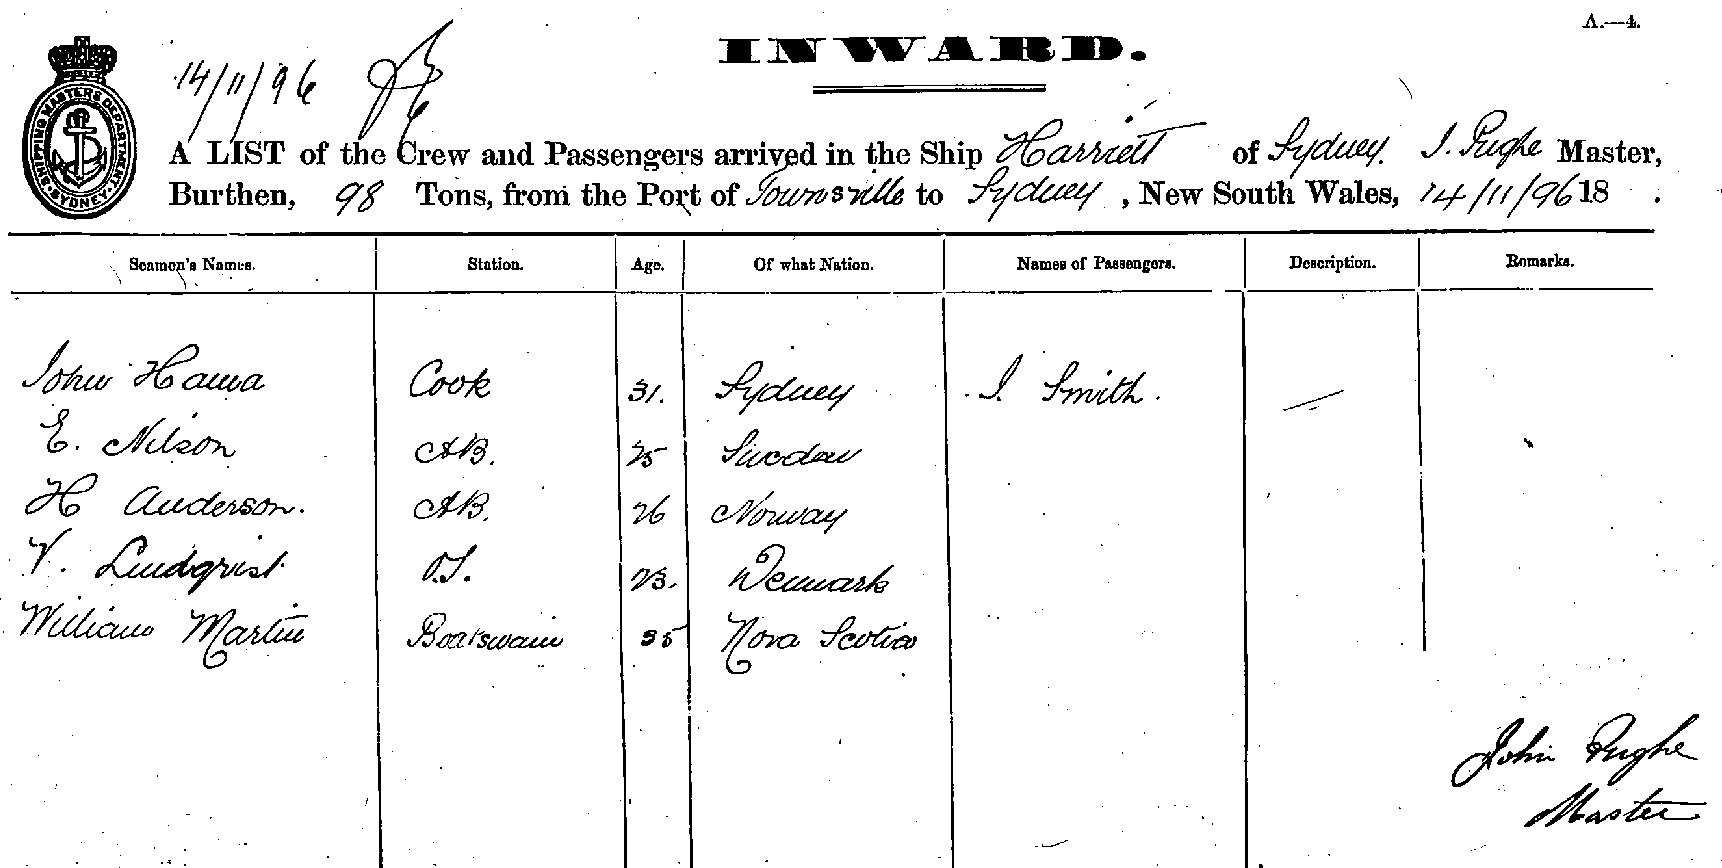 A.—4.
INWARD.
14/11/96
SHIPPING MASTERS DEPARTMENT SYDNEY
A LIST of the Crew and Passengers arrived in the Ship Harriett of Sydney. J. Pughe Master,
Burthen, 98 Tons, from the Port of Townsville to Sydney, New South Wales, 14/11/96 18 .
Seamen's Names. Station. Age. Of what Nation. Names of Passengers. Description. Remarks.
John Hama Cook 31. Sydney J. Smith.
E. Nilson AB. 25 Sweden
H Anderson. AB. 26 Norway
V. Lindqvist O.S. 23. Denmark
William Martin Boatswain 35 Nova Scotia
John Pughe
Master